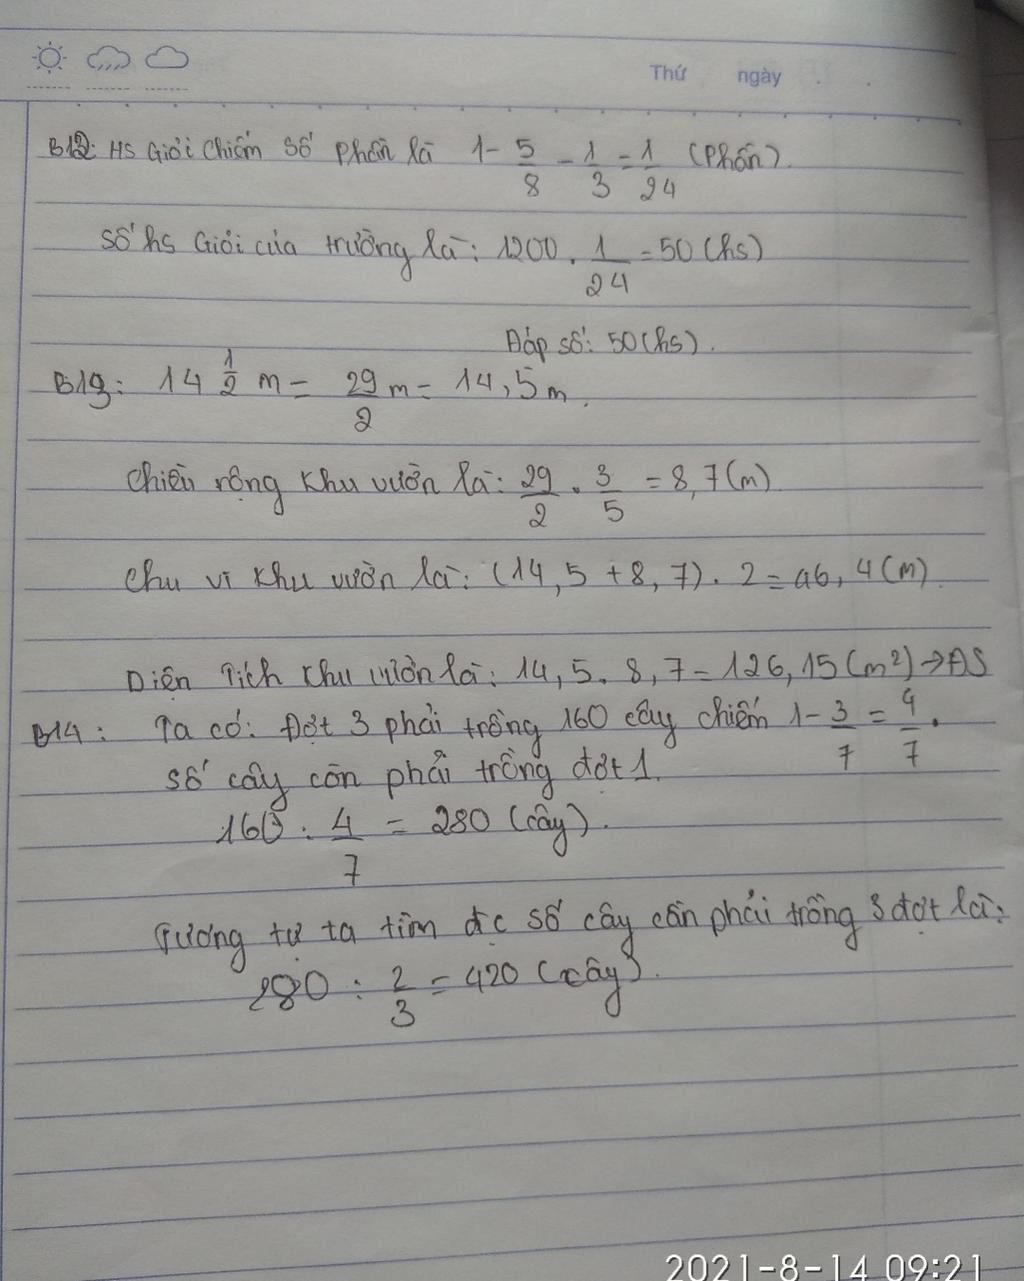 Thứ ngày
B12: HS Giỏi chiếm số phần là 1 - 5/8 - 1/3 = 1/24 (Phần).
Số hs Giỏi của trường là: 1200 . 1/24 = 50 (hs)
Đáp số: 50 (hs).
B13: 14 1/2 m = 29/2 m = 14,5 m.
Chiều rộng khu vườn là: 29/2 . 3/5 = 8,7 (m)
Chu vi khu vườn là: (14,5 + 8,7) . 2 = 46,4 (m)
Diện tích khu vườn là: 14,5 . 8,7 = 126,15 (m²) → ĐS
B14: Ta có: Đợt 3 phải trồng 160 cây chiếm 1 - 3/7 = 4/7.
Số cây còn phải trồng đợt 1.
160 : 4/7 = 280 (cây).
Tương tự ta tìm đc số cây cần phải trồng 3 đợt là:
280 : 2/3 = 420 (cây).
2021-8-14 09:21